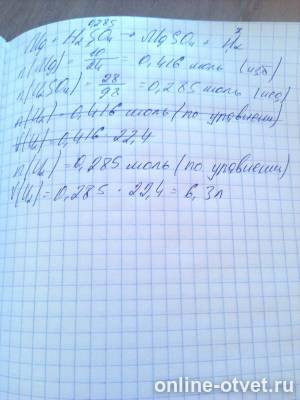 0,285 x
Mg + H2SO4 → MgSO4 + H2
n(Mg) = 10/24 = 0,416 моль (изб)
n(H2SO4) = 28/98 = 0,285 моль (нед)
n(H2) = 0,416 моль (по уравнению)
V(H2) = 0,416 · 22,4
n(H2) = 0,285 моль (по уравнению)
V(H2) = 0,285 · 22,4 = 6,3 л
online-otvet.ru